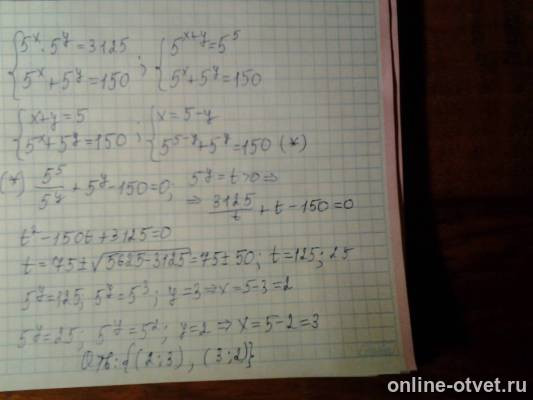 {5^x · 5^y = 3125 ; {5^(x+y) = 5^5
{5^x + 5^y = 150 {5^x + 5^y = 150
{x + y = 5 ; {x = 5 - y
{5^x + 5^y = 150 {5^(5-y) + 5^y = 150 (*)
(*) 5^5/5^y + 5^y - 150 = 0; 5^y = t > 0 ⇒
⇒ 3125/t + t - 150 = 0
t² - 150t + 3125 = 0
t = 75 ± √5625-3125 = 75 ± 50; t = 125; 25
5^y = 125; 5^y = 5^3; y = 3 ⇒ x = 5-3 = 2
5^y = 25; 5^y = 5^2; y = 2 ⇒ x = 5-2 = 3
Отв: {(2;3), (3;2)}
online-otvet.ru